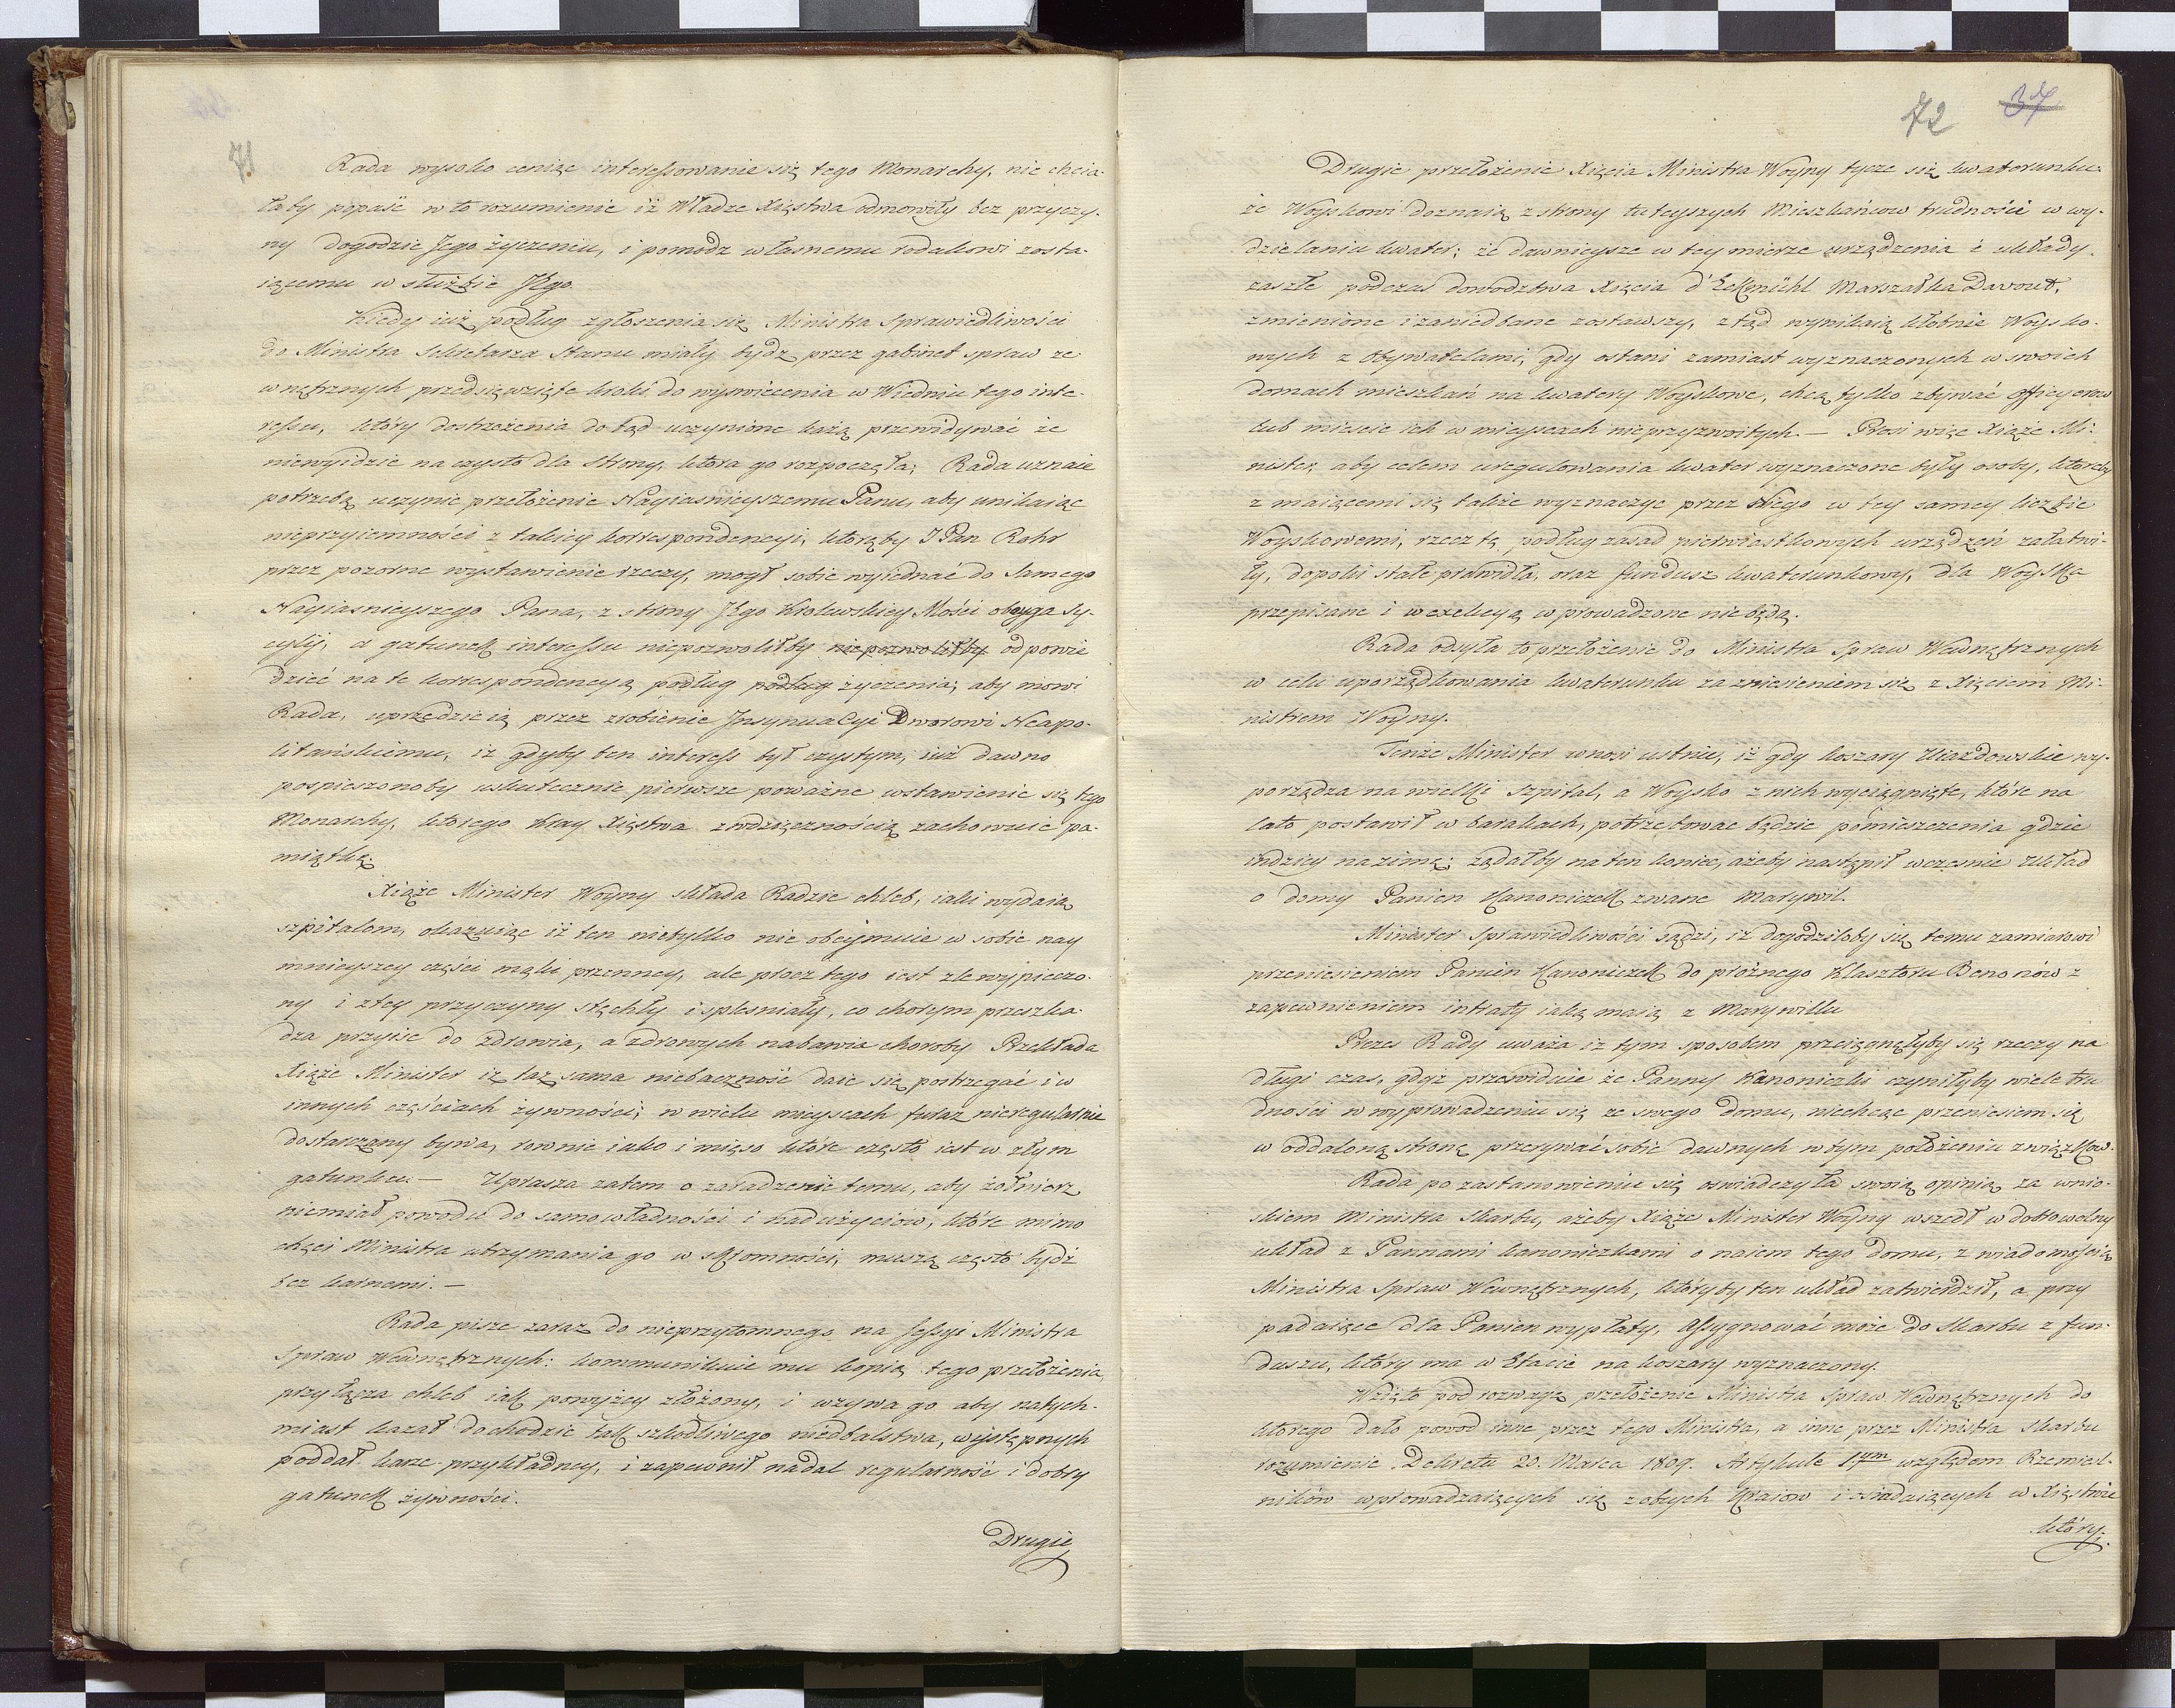 71
Rada wysoko ceniąc interessowanie się tego Monarchy, nie chcia-
łaby popaść w to rozumienie iż Władze Xięstwa odmowiły bez przyczy-
ny dogodzić Jego życzeniu, i pomodz własnemu rodakowi zosta-
iącemu w służbie Jego.
Kiedy iuż podług zgłoszenia się Ministra Sprawiedliwości
do Ministra Sekretarza Stanu miały bydz przez gabinet spraw ze
wnętrznych przedsięwzięte kroki do wyswiecenia w Wiedniu tego inte-
ressu, który dostrzeżenia do tąd uczynione każą przewidywać że
niewyidzie na czysto dla strony, ktora go rozpoczęła; Rada uznaie
potrzebę uczynic przełożenie Nayiasnieyszemu Panu, aby unikaiąc
nieprzyiemności z takiey korrespondencyi, ktorąby JPan Rohr
przez pozorne wystawienie rzeczy, mogł sobie wyiednać do Samego
Nayiasnieyszego Pana, z strony Jego Krolewskiey Mości oboyga Sy-
cylij, a gatunek interessu niepozwoliłby niepozwoliłby odpowie
dzieć na te korrespondencyą podług podług życzenia; aby mowi
Rada, uprzedzić ią przez zrobienie Insynuacyi Dworowi Neapo-
litańskiemu, iż gdyby ten interess był czystym, iuż dawno
pospieszonoby uskutecznic pierwsze poważne wstawienie się tego
Monarchy, ktorego Kray Xięstwa z wdzięcznością zachowuie pa-
miątkę.
Xiąże Minister Woyny składa Radzie chleb, iaki wydaią
szpitalom, okazuiąc iż ten nietylko nie obeymuie w sobie nay
mnieyszey części mąki przenney, ale procz tego iest zle wypieczo-
ny i z tey przyczyny stęchły i splesniały, co chorym przeszka-
dza przyiść do zdrowia, a zdrowych nabawia choroby Przekłada
Xiąże Minister iż taż sama niebaczność daie się postrzegać i w
innych częściach żywności; w wielu mieyscach furaż nieregularnie
dostarczany bywa, rownie iako i mięso które często iest w złym
gatunku. — Uprasza zatem o zaradzenie temu, aby żołnierz
niemiał powodu do samowładności i nadużyciów, które mimo
chęci Ministra utrzymania go w skromności, muszą często bydź
bez karnemi. —
Rada pisze zaraz do nieprzytomnego na Sessyi Ministra
Spraw Wewnętrznych: kommunikuie mu kopią tego przełożenia,
przyłącza chleb iak powyżey złożony, i wzywa go aby natych-
miast kazał dochodzić tak szkodliwego niedbalstwa, występnych
poddał karze przykładney, i zapewnił nadal regularność i dobry
gatunek żywności.
Drugie
72 37
Drugie przełożenie Xięcia Ministra Woyny tycze się kwaterunku:
że Woyskowi doznaią z strony tuteyszych Mieszkańcow trudności w wy-
dzielaniu kwater; że dawnieysze w tey mierze urządzenia i układy
zaszłe podczas dowodztwa Xięcia d'Eckmühl Marszałka Davout,
zmienione i zaniedbane zostawszy, z tąd wynikaią kłotnie Woysko-
wych z Obywatelami, gdy ostani zamiast wyznaczonych w swoich
domach mieszkań na kwatery Woyskowe, chcą tylko zbywać Officyerow
lub mieście ich w mieyscach nieprzyzwoitych. — Prosi więc Xiąże Mi-
nister, aby celem uregulowania kwater wyznaczone były osoby, ktoreby
z maiącemi się także wyznaczyc przez Niego w tey samey liczbie
Woyskowemi, rzecz tę podług zasad pierwiastkowych urządzeń załatwi-
ły, dopoki stałe prawidła, oraz fundusz kwaterunkowy, dla Woyska
przepisane i w exekucyą wprowadzone nie będą.
Rada odsyła to przełożenie do Ministra Spraw Wewnętrznych
w celu uporządkowania kwaterunku za zniesieniem się z Xięciem Mi-
nistrem Woyny.
Tenże Minister wnosi ustnie, iż gdy koszary Uiazdowskie wy-
porządza na wielki szpital, a Woysko z nich wyciągnięte, które na
lato postawił w barakach, potrzebować będzie pomieszczenia gdzie
indziey na zimę; żądałby na ten koniec, ażeby nastąpił wcześnie Układ
o domy Panien Kanoniczek zwane Marywil.
Minister Sprawiedliwości sądzi, iż dogodziloby się temu zamiarowi
przeniesieniem Panien Kanoniczek do próżnego Klasztoru Benonów z
zapewnieniem intraty iaką maią z Marywillu
Prezes Rady uważa iż tym sposobem przeciągnęłyby się rzeczy na
długi czas, gdyż przewiduie że Panny Kanoniczki czyniłyby wiele tru
dności w wyprowadzeniu się ze swego domu, niechcąc przeniesiem się
w oddaloną stronę przerywać sobie dawnych w tym położeniu związkow.
Rada po zastanowieniu się oswiadczyła swoią opinią za wnio-
skiem Ministra Skarbu, ażeby Xiąże Minister Woyny wszedł w dobrowolny
układ z Pannami kanoniczkami o naiem tego domu, z wiadomością
Ministra Spraw Wewnętrznych, któryby ten układ zatwierdził, a przy
padaiące dla Panien wypłaty, Assygnować może do Skarbu z fun-
duszu, który ma w Etacie na koszary wyznaczony.
Wzięto pod rozwagę przełożenie Ministra Spraw Wewnętrznych do
ktorego dało powod inne przez tego Ministra, a inne przez Ministra Skarbu
rozumienie Dekretu 20. Marca 1809. Artykule 1ym względem Rzemieśl-
ników wprowadzaiących się z obcych Kraiow i osiadaiących w Xięstwie
który: